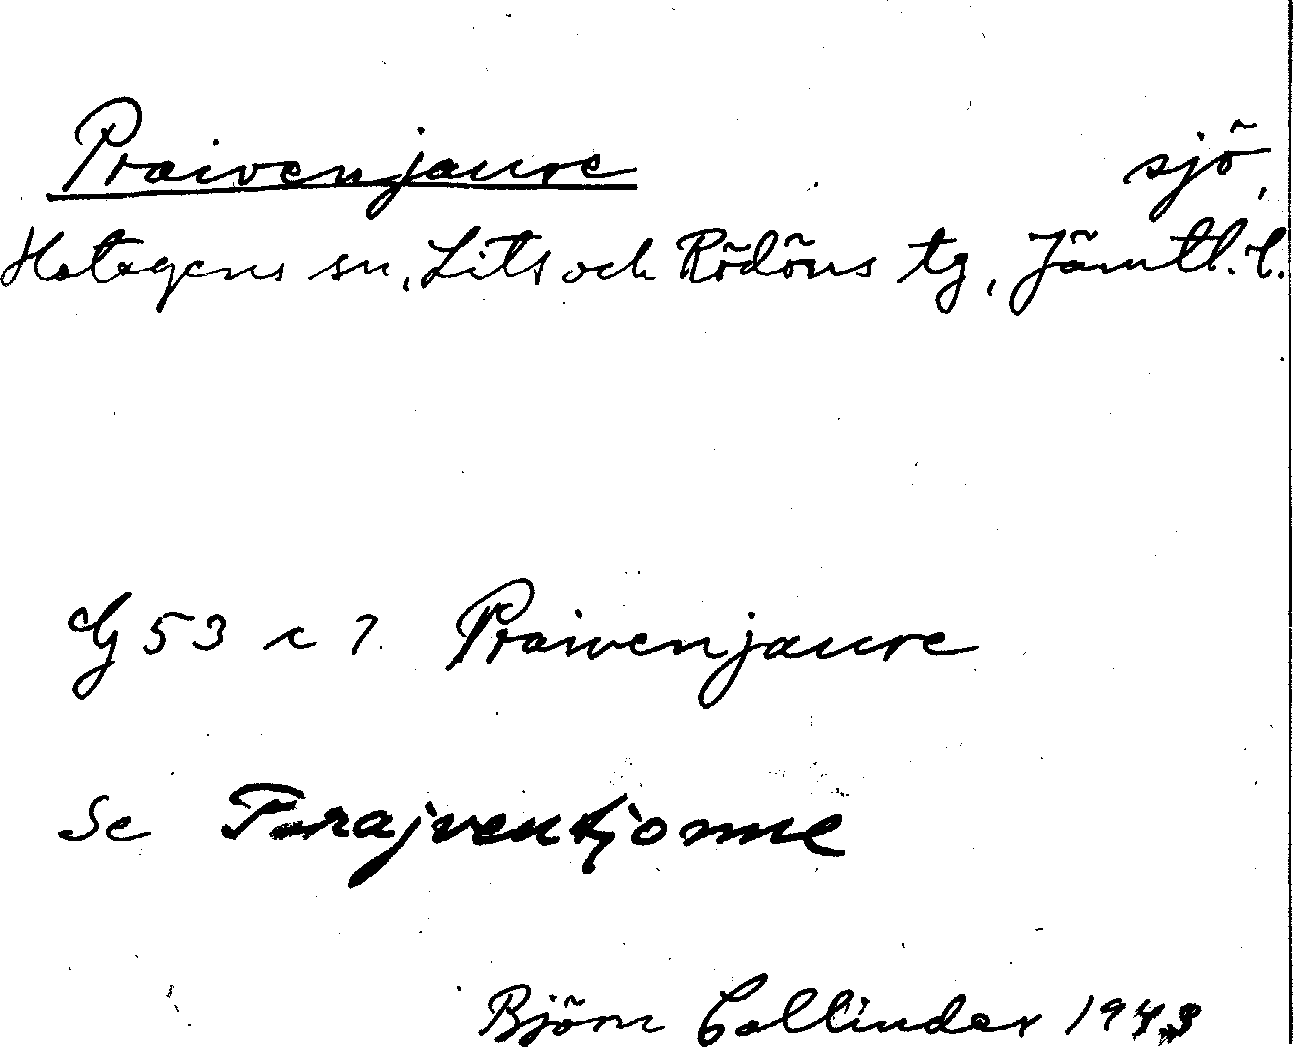 Praivenjaure sjö,
Hotagens sn, Lits och Rödöns tg, Jämtl. l.
G 53 c 7. Praivenjaure
Se Prajventjonne
Björn Collinder 1943